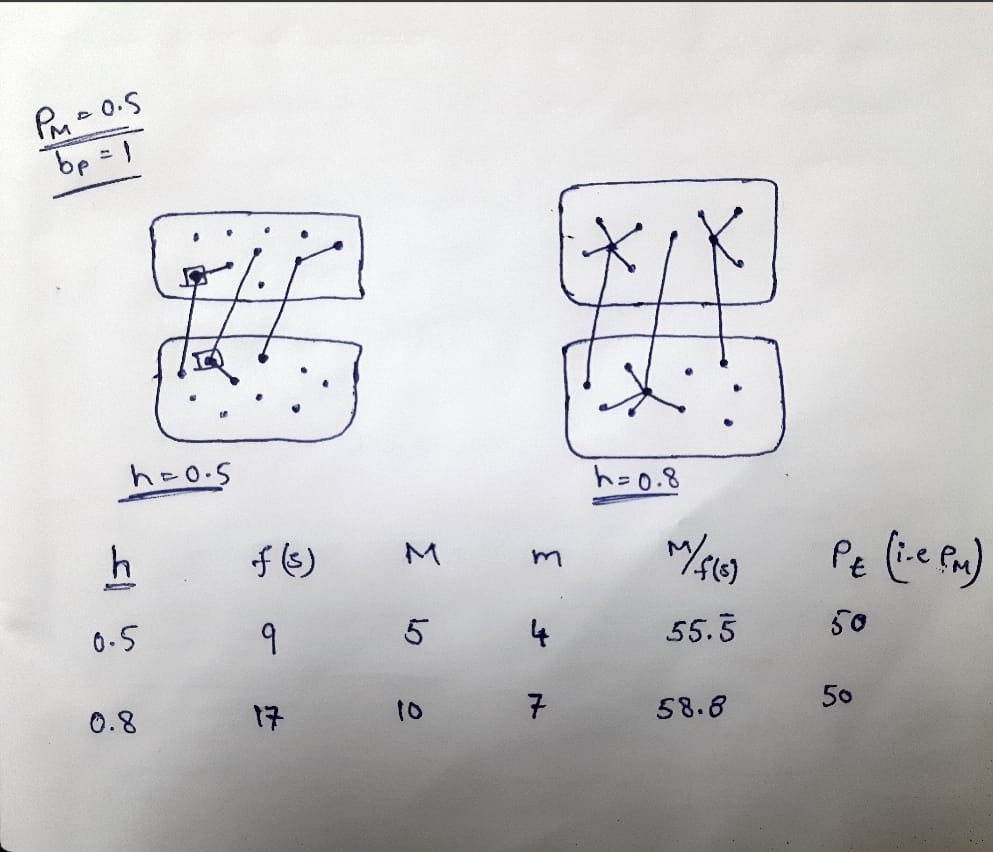 PM = 0.5
bp = 1
h = 0.5
h = 0.8
h f(s) M m M/f(s) Pt (i-e PM)
0.5 9 5 4 55.5̄ 50
0.8 17 10 7 58.8 50